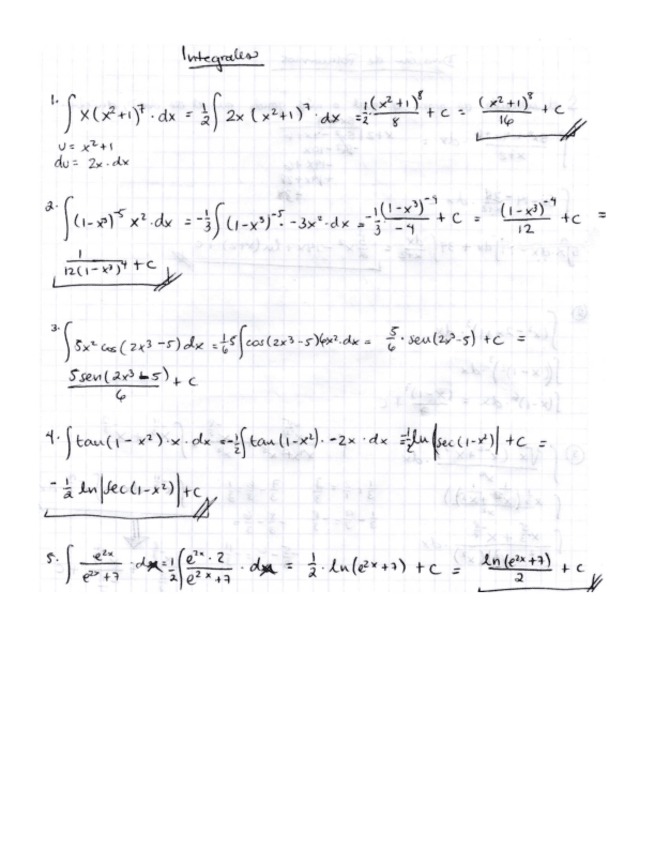 Integrales
1. ∫ x(x²+1)⁷ · dx = 1/2 ∫ 2x (x²+1)⁷ · dx = 1/2 · (x²+1)⁸/8 + c = (x²+1)⁸/16 + c
u = x²+1
du = 2x · dx
2. ∫ (1-x³)⁻⁵ x² · dx = -1/3 ∫ (1-x³)⁻⁵ · -3x² · dx = -1/3 (1-x³)⁻⁴/-4 + c = (1-x³)⁻⁴/12 + c =
1/12(1-x³)⁴ + c
3. ∫ 5x² cos(2x³-5) dx = 1/6 5 ∫ cos(2x³-5) 6x² · dx = 5/6 · sen(2x³-5) + c =
5 sen(2x³-5)/6 + c
4. ∫ tan(1-x²) · x · dx = -1/2 ∫ tan(1-x²) · -2x · dx = -1/2 ln|sec(1-x²)| + c =
-1/2 ln|sec(1-x²)| + c
5. ∫ e²ˣ/e²ˣ+7 · dx = 1/2 ∫ e²ˣ · 2/e²ˣ+7 · dx = 1/2 · ln(e²ˣ+7) + c = ln(e²ˣ+7)/2 + c